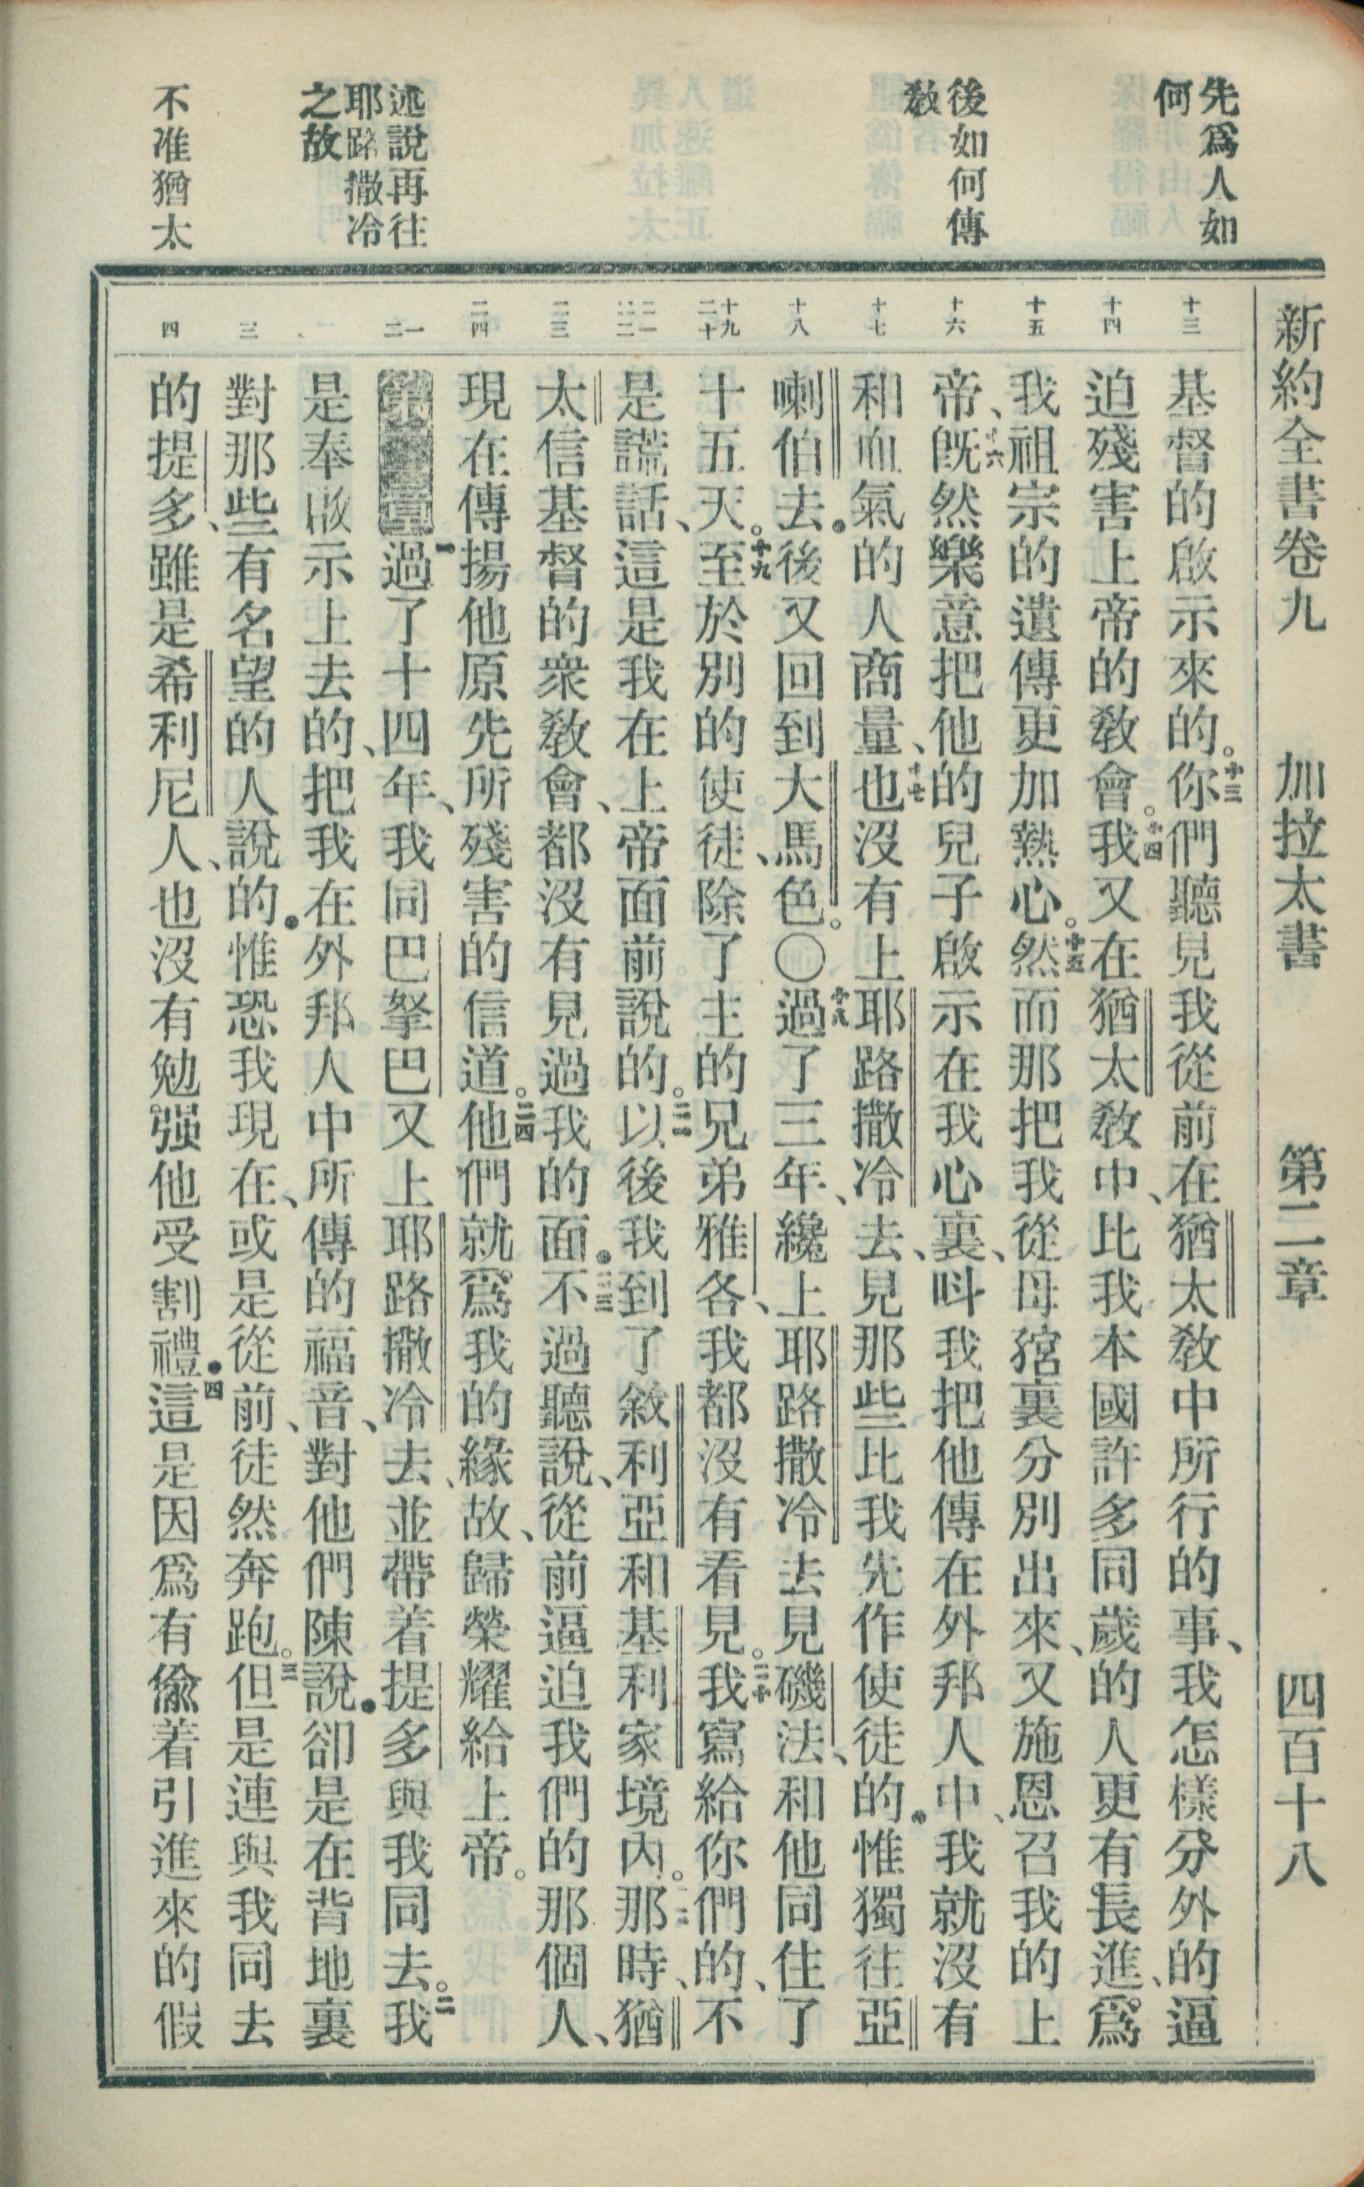 新約全書卷九 加拉太書 第二章 四百十八
先爲人如
何
後如何傳
教
述說再往
耶路撒冷
之故
不准猶太
十三
十四
十五
十六
十七
十八
十九
二十
二一
二二
二三
二四
一
二
三
四
基督的啟示來的。十三你們聽見我從前在猶太教中所行的事、我怎樣分外的逼
迫殘害上帝的教會。十四我又在猶太教中、比我本國許多同歲的人更有長進、爲
我祖宗的遺傳更加熱心。十五然而那把我從母腹裏分別出來、又施恩召我的上
帝、十六旣然樂意把他的兒子啟示在我心裏、呌我把他傳在外邦人中、我就沒有
和血氣的人商量、十七也沒有上耶路撒冷去、見那些比我先作使徒的．惟獨往亞
喇伯去．後又回到大馬色。〇十八過了三年、纔上耶路撒冷去見磯法、和他同住了
十五天。十九至於別的使徒、除了主的兄弟雅各、我都沒有看見。二十我寫給你們的、不
是謊話、這是我在上帝面前說的。二一以後我到了敘利亞和基利家境內。二二那時、猶
太信基督的衆教會、都沒有見過我的面．二三不過聽說、從前逼迫我們的那個人、
現在傳揚他原先所殘害的信道。二四他們就爲我的緣故、歸榮耀給上帝。
第二章一過了十四年、我同巴拏巴又上耶路撒冷去、並帶着提多與我同去。二我
是奉啟示上去的、把我在外邦人中所傳的福音、對他們陳說．卻是在背地裏
對那些有名望的人說的．惟恐我現在、或是從前、徒然奔跑。三但是連與我同去
的提多、雖是希利尼人、也沒有勉强他受割禮．四這是因爲有偸着引進來的假